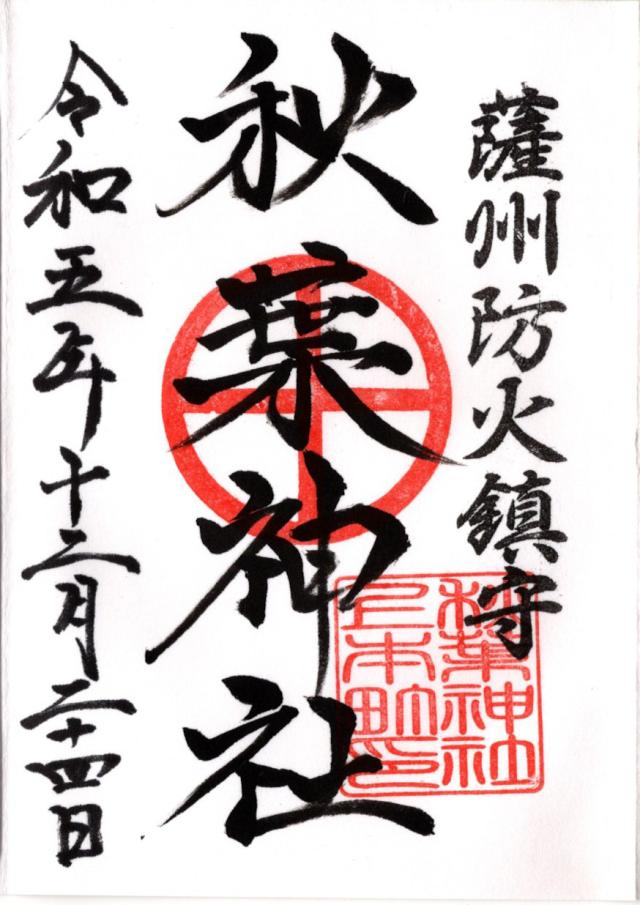 薩州防火鎮守
秋葉神社
秋葉神社
上本町印
令和五年十二月二十四日